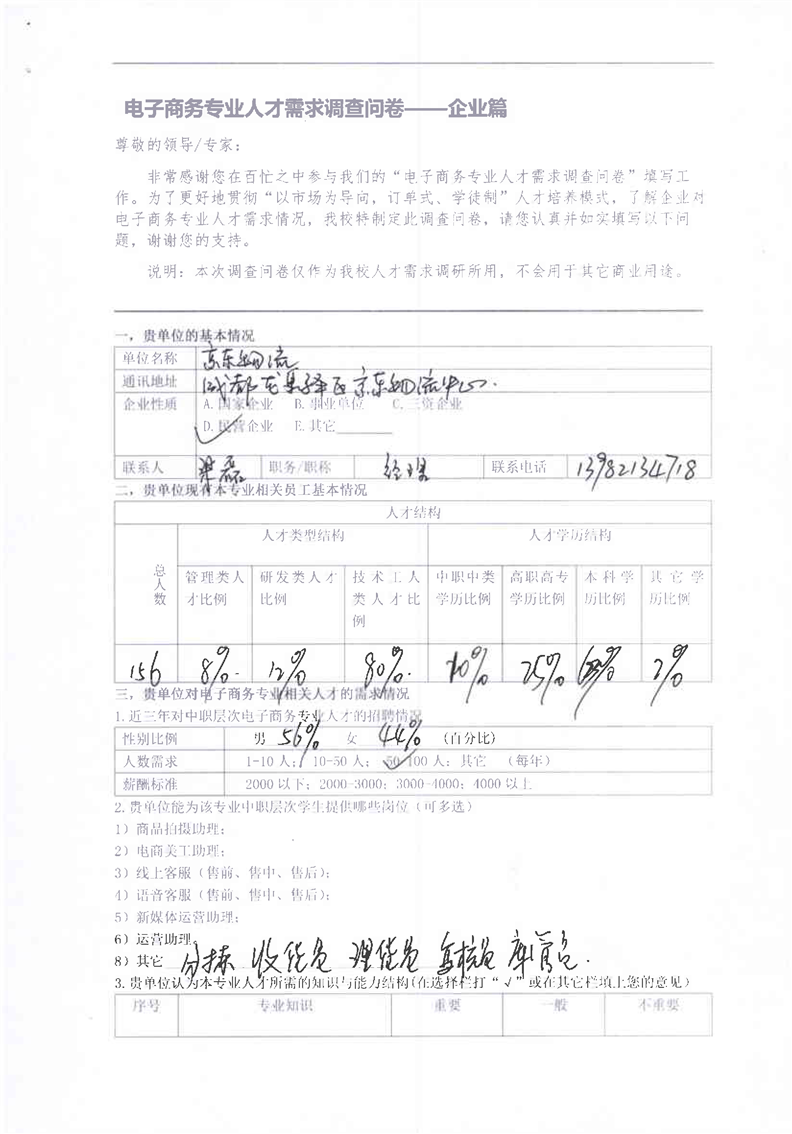 电子商务专业人才需求调查问卷——企业篇
尊敬的领导/专家：
非常感谢您在百忙之中参与我们的“电子商务专业人才需求调查问卷”填写工
作。为了更好地贯彻“以市场为导向，订单式、学徒制”人才培养模式，了解企业对
电子商务专业人才需求情况，我校特制定此调查问卷，请您认真并如实填写以下问
题，谢谢您的支持。
说明：本次调查问卷仅作为我校人才需求调研所用，不会用于其它商业用途。
一，贵单位的基本情况
单位名称 京东物流
通讯地址 成都龙泉驿区京东物流中心.
企业性质 A.国家企业 B.事业单位 C.三资企业
✓D.民营企业 E.其它______
联系人 梁磊 职务/职称 经理 联系电话 13982134718
二，贵单位现有本专业相关员工基本情况
人才结构
总人数 人才类型结构 人才学历结构
管理类人才比例 研发类人才比例 技术工人类人才比例 中职中类学历比例 高职高专学历比例 本科学历比例 其它学历比例
156 8%. 12% 80%. 10% 25% 2%
三，贵单位对电子商务专业相关人才的需求情况
1.近三年对中职层次电子商务专业人才的招聘情况
性别比例 男 56% 女 44% (百分比)
人数需求 1-10 人； 10-50 人； ✓50-100 人；其它 （每年）
薪酬标准 2000 以下；2000-3000；3000-4000；4000 以上
2.贵单位能为该专业中职层次学生提供哪些岗位（可多选）
1）商品拍摄助理；
2）电商美工助理；
3）线上客服（售前、售中、售后）；
4）语音客服（售前、售中、售后）；
5）新媒体运营助理；
6）运营助理。
8）其它 分拣 收货员 理货员 复核员 库管员.
3.贵单位认为本专业人才所需的知识与能力结构(在选择栏打“√”或在其它栏填上您的意见)
序号 专业知识 重要 一般 不重要